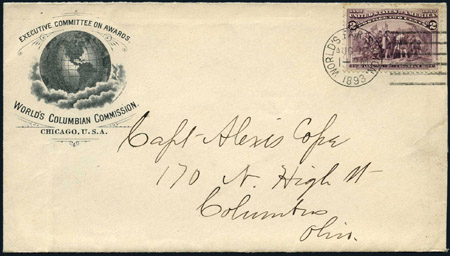 EXECUTIVE COMMITTEE ON AWARDS.
WORLD'S COLUMBIAN COMMISSION.
CHICAGO, U.S.A.
UNITED STATES OF AMERICA
2 2
WORLD'S
1893
Capt Alexis Cope
170 N. High St
Columbus
Ohio.